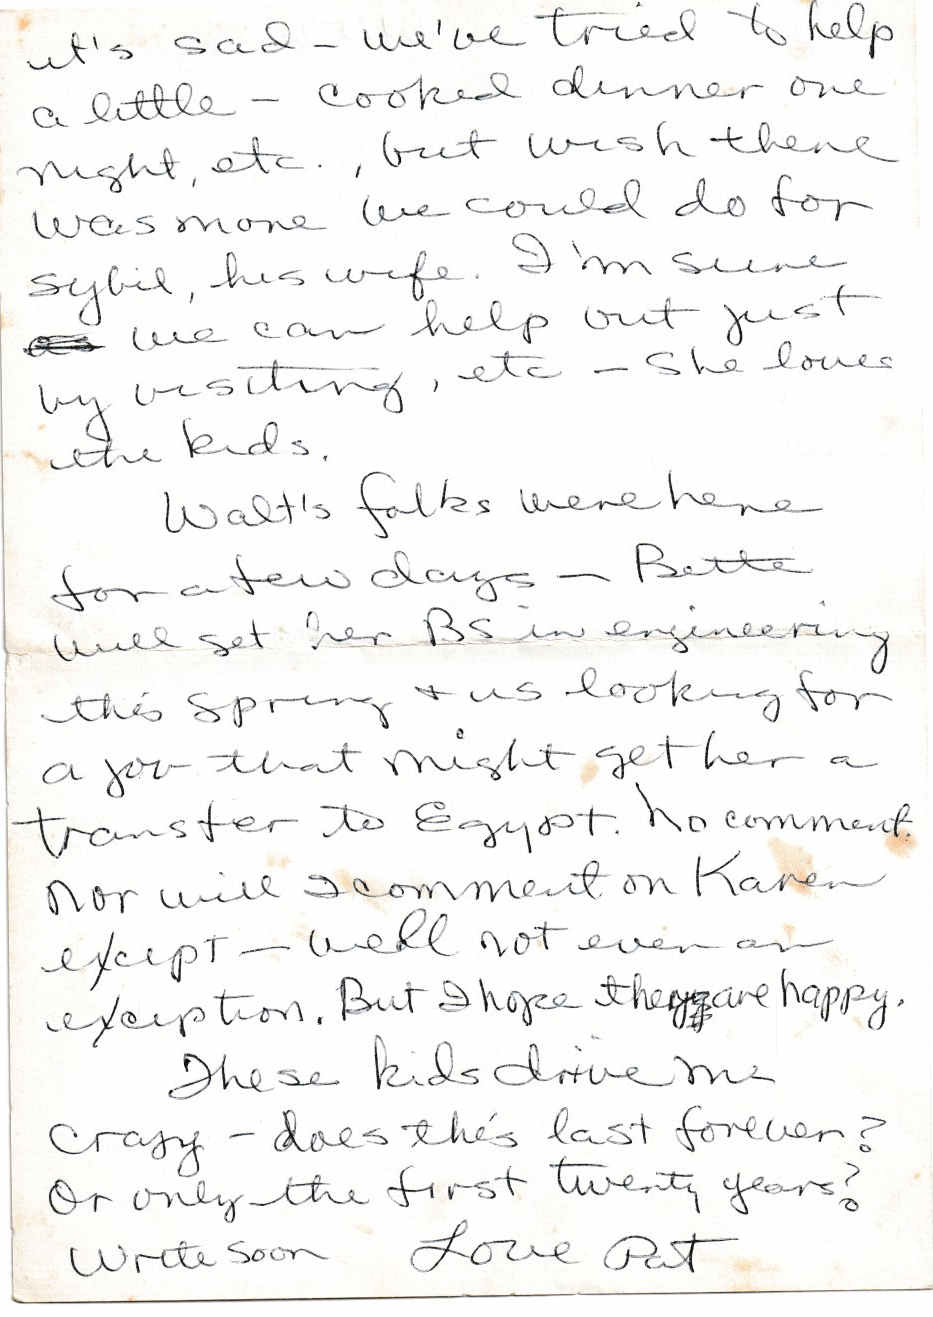 it's sad - we've tried to help
a little - cooked dinner one
night, etc., but wish there
was more we could do for
Sybil, his wife. I'm sure
we can help out just
by visiting, etc - She loves
the kids.
Walt's folks were here
for a few days - Bette
will get her BS in engineering
this spring + is looking for
a job that might get her a
transfer to Egypt. No comment.
Nor will I comment on Karen
except - well not even an
exception. But I hope they are happy.
These kids drive me
crazy - does this last forever?
Or only the first twenty years?
Write soon Love Pat